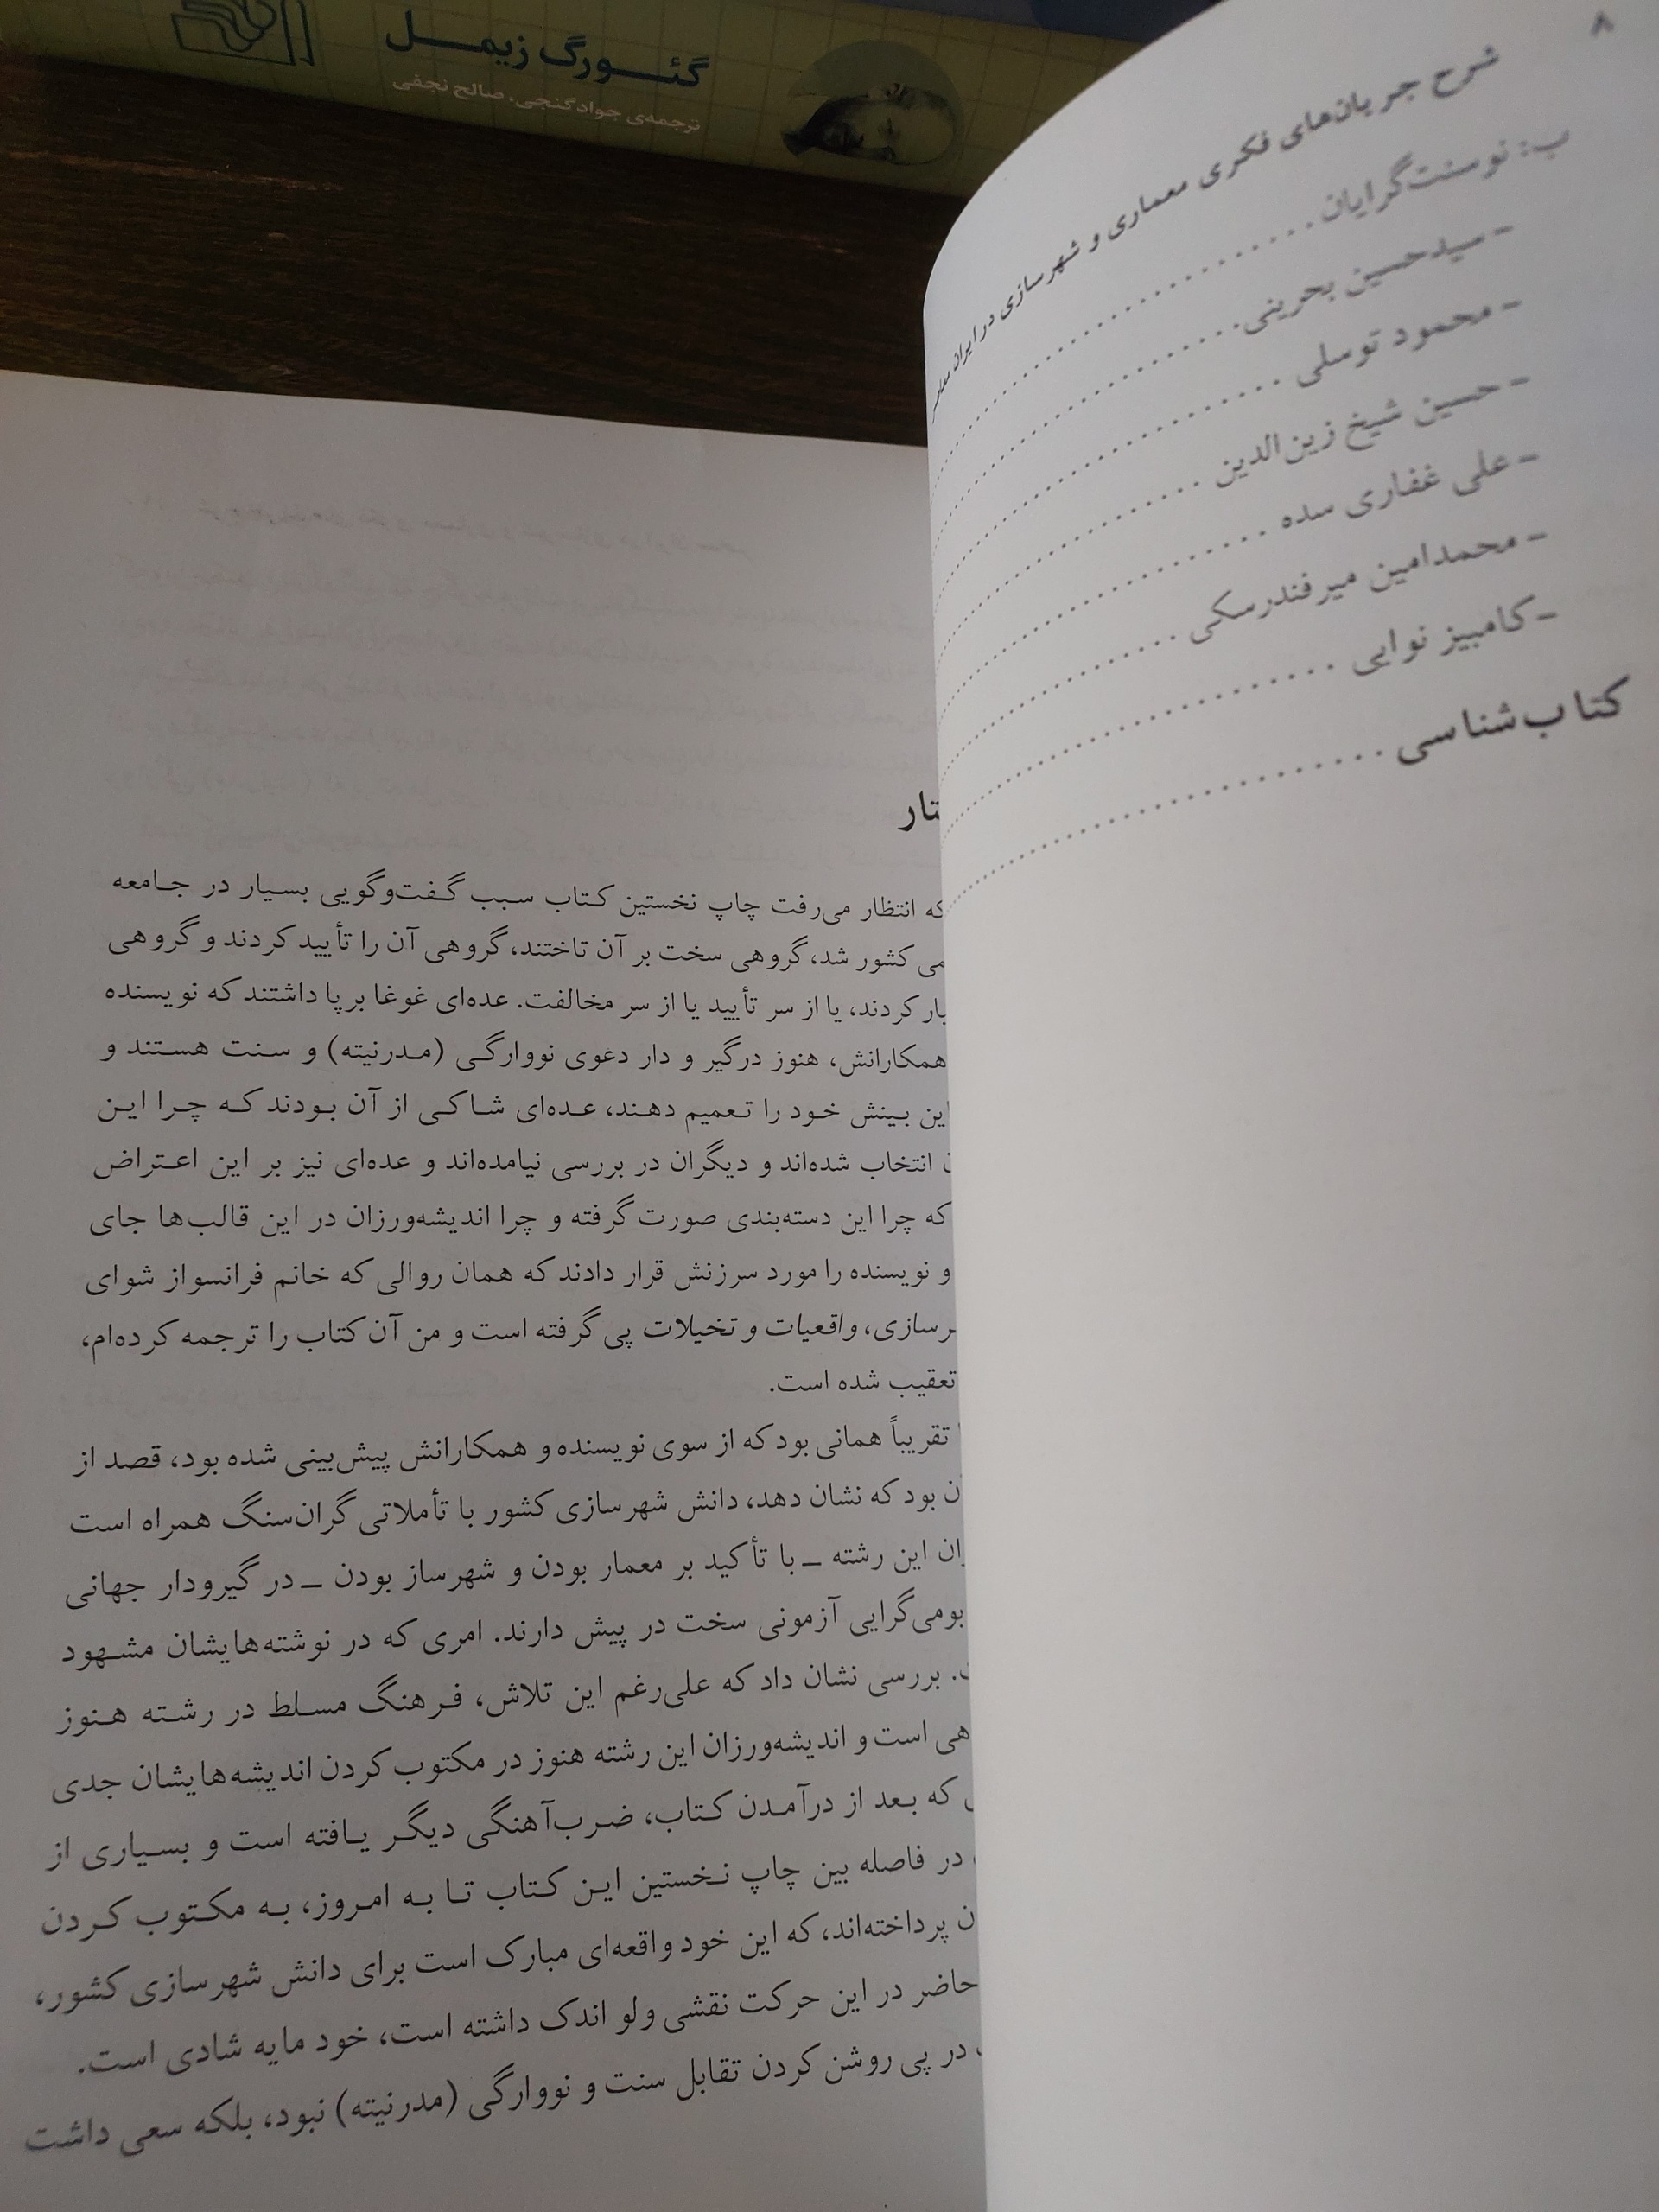 گئورگ زیمل
ترجمه‌ی جواد گنجی، صالح نجفی
۸
شرح جریان‌های فکری معماری و شهرسازی در ایران
ب: نوسنت‌گرایان
- سیدحسین بحرینی
- محمود توسلی
- حسین شیخ زین‌الدین
- علی غفاری سده
- محمدامین میرفندرسکی
- کامبیز نوایی
کتاب‌شناسی
که انتظار می‌رفت چاپ نخستین کتاب سبب گفت‌وگویی بسیار در جامعه
کشور شد، گروهی سخت بر آن تاختند، گروهی آن را تأیید کردند و گروهی
کردند، یا از سر تأیید یا از سر مخالفت. عده‌ای غوغا برپا داشتند که نویسنده
همکارانش، هنوز درگیر و دار دعوی نووارگی (مدرنیته) و سنت هستند و
این بینش خود را تعمیم دهند، عده‌ای شاکی از آن بودند که چرا این
انتخاب شده‌اند و دیگران در بررسی نیامده‌اند و عده‌ای نیز بر این اعتراض
که چرا این دسته‌بندی صورت گرفته و چرا اندیشه‌ورزان در این قالب‌ها جای
و نویسنده را مورد سرزنش قرار دادند که همان روالی که خانم فرانسواز شوای
رسازی، واقعیات و تخیلات پی گرفته است و من آن کتاب را ترجمه کرده‌ام،
تعقیب شده است.
تقریباً همانی بود که از سوی نویسنده و همکارانش پیش‌بینی شده بود، قصد از
بود که نشان دهد، دانش شهرسازی کشور با تأملاتی گران‌سنگ همراه است
این رشته ــ با تأکید بر معمار بودن و شهرساز بودن ــ در گیرودار جهانی
بومی‌گرایی آزمونی سخت در پیش دارند. امری که در نوشته‌هایشان مشهود
بررسی نشان داد که علی‌رغم این تلاش، فرهنگ مسلط در رشته هنوز
است و اندیشه‌ورزان این رشته هنوز در مکتوب کردن اندیشه‌هایشان جدی
که بعد از درآمدن کتاب، ضرب‌آهنگی دیگر یافته است و بسیاری از
در فاصله بین چاپ نخستین این کتاب تا به امروز، به مکتوب کردن
پرداخته‌اند، که این خود واقعه‌ای مبارک است برای دانش شهرسازی کشور،
حاضر در این حرکت نقشی ولو اندک داشته است، خود مایه شادی است.
در پی روشن کردن تقابل سنت و نووارگی (مدرنیته) نبود، بلکه سعی داشت